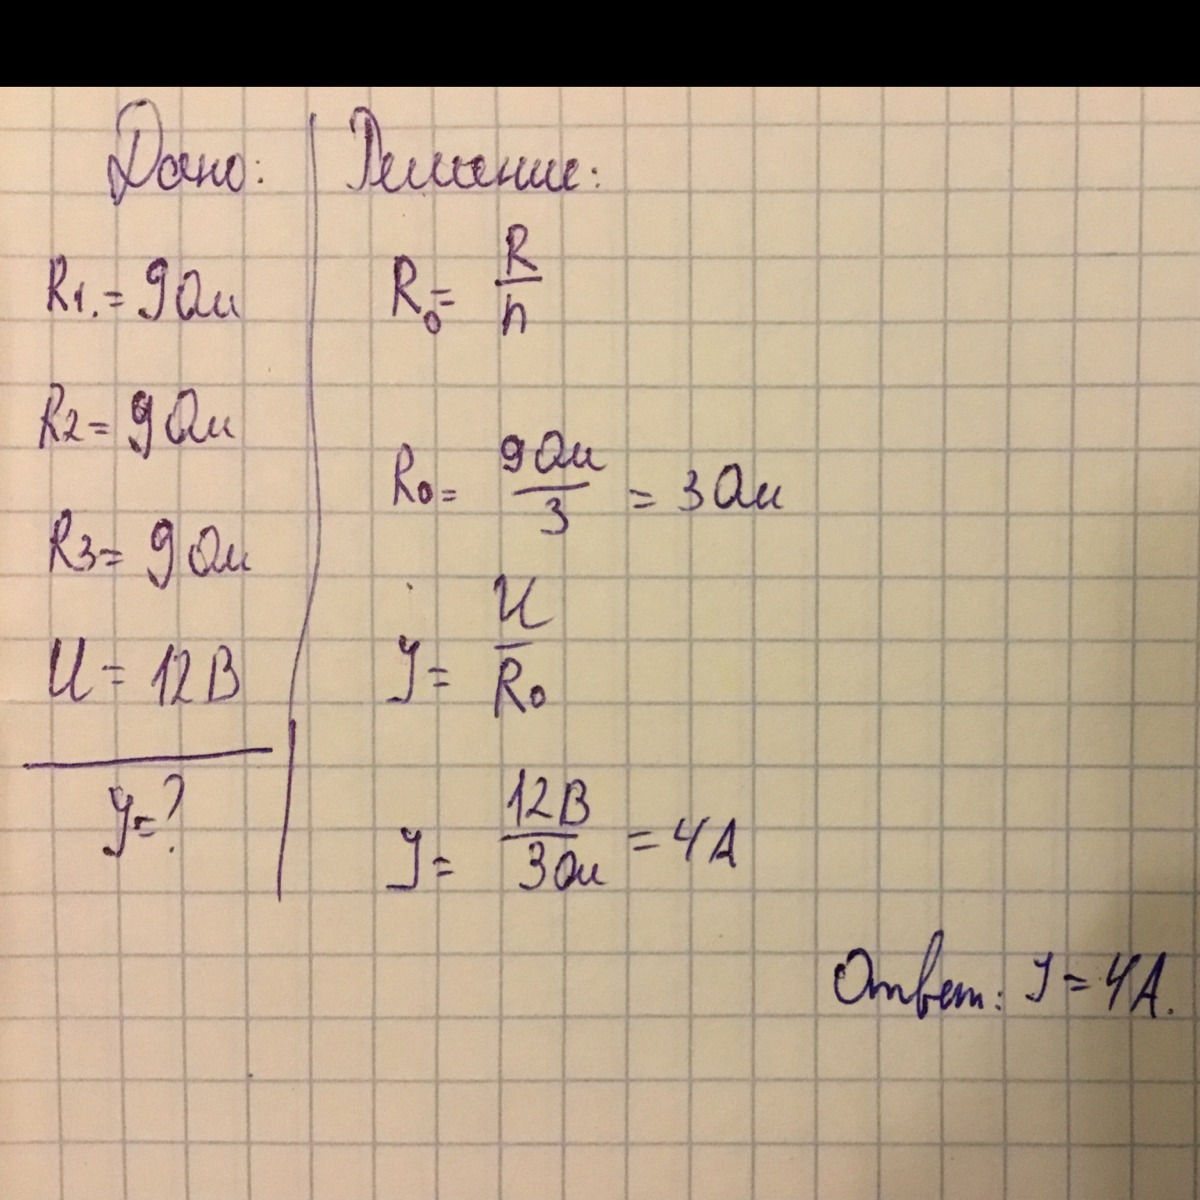 Дано:
R1.=9Ом
R2=9Ом
R3=9Ом
U=12В
J=?
Решение:
R₀=R/n
R₀=9Ом/3=3Ом
J=U/R₀
J=12В/3Ом=4А
Ответ: J=4А.